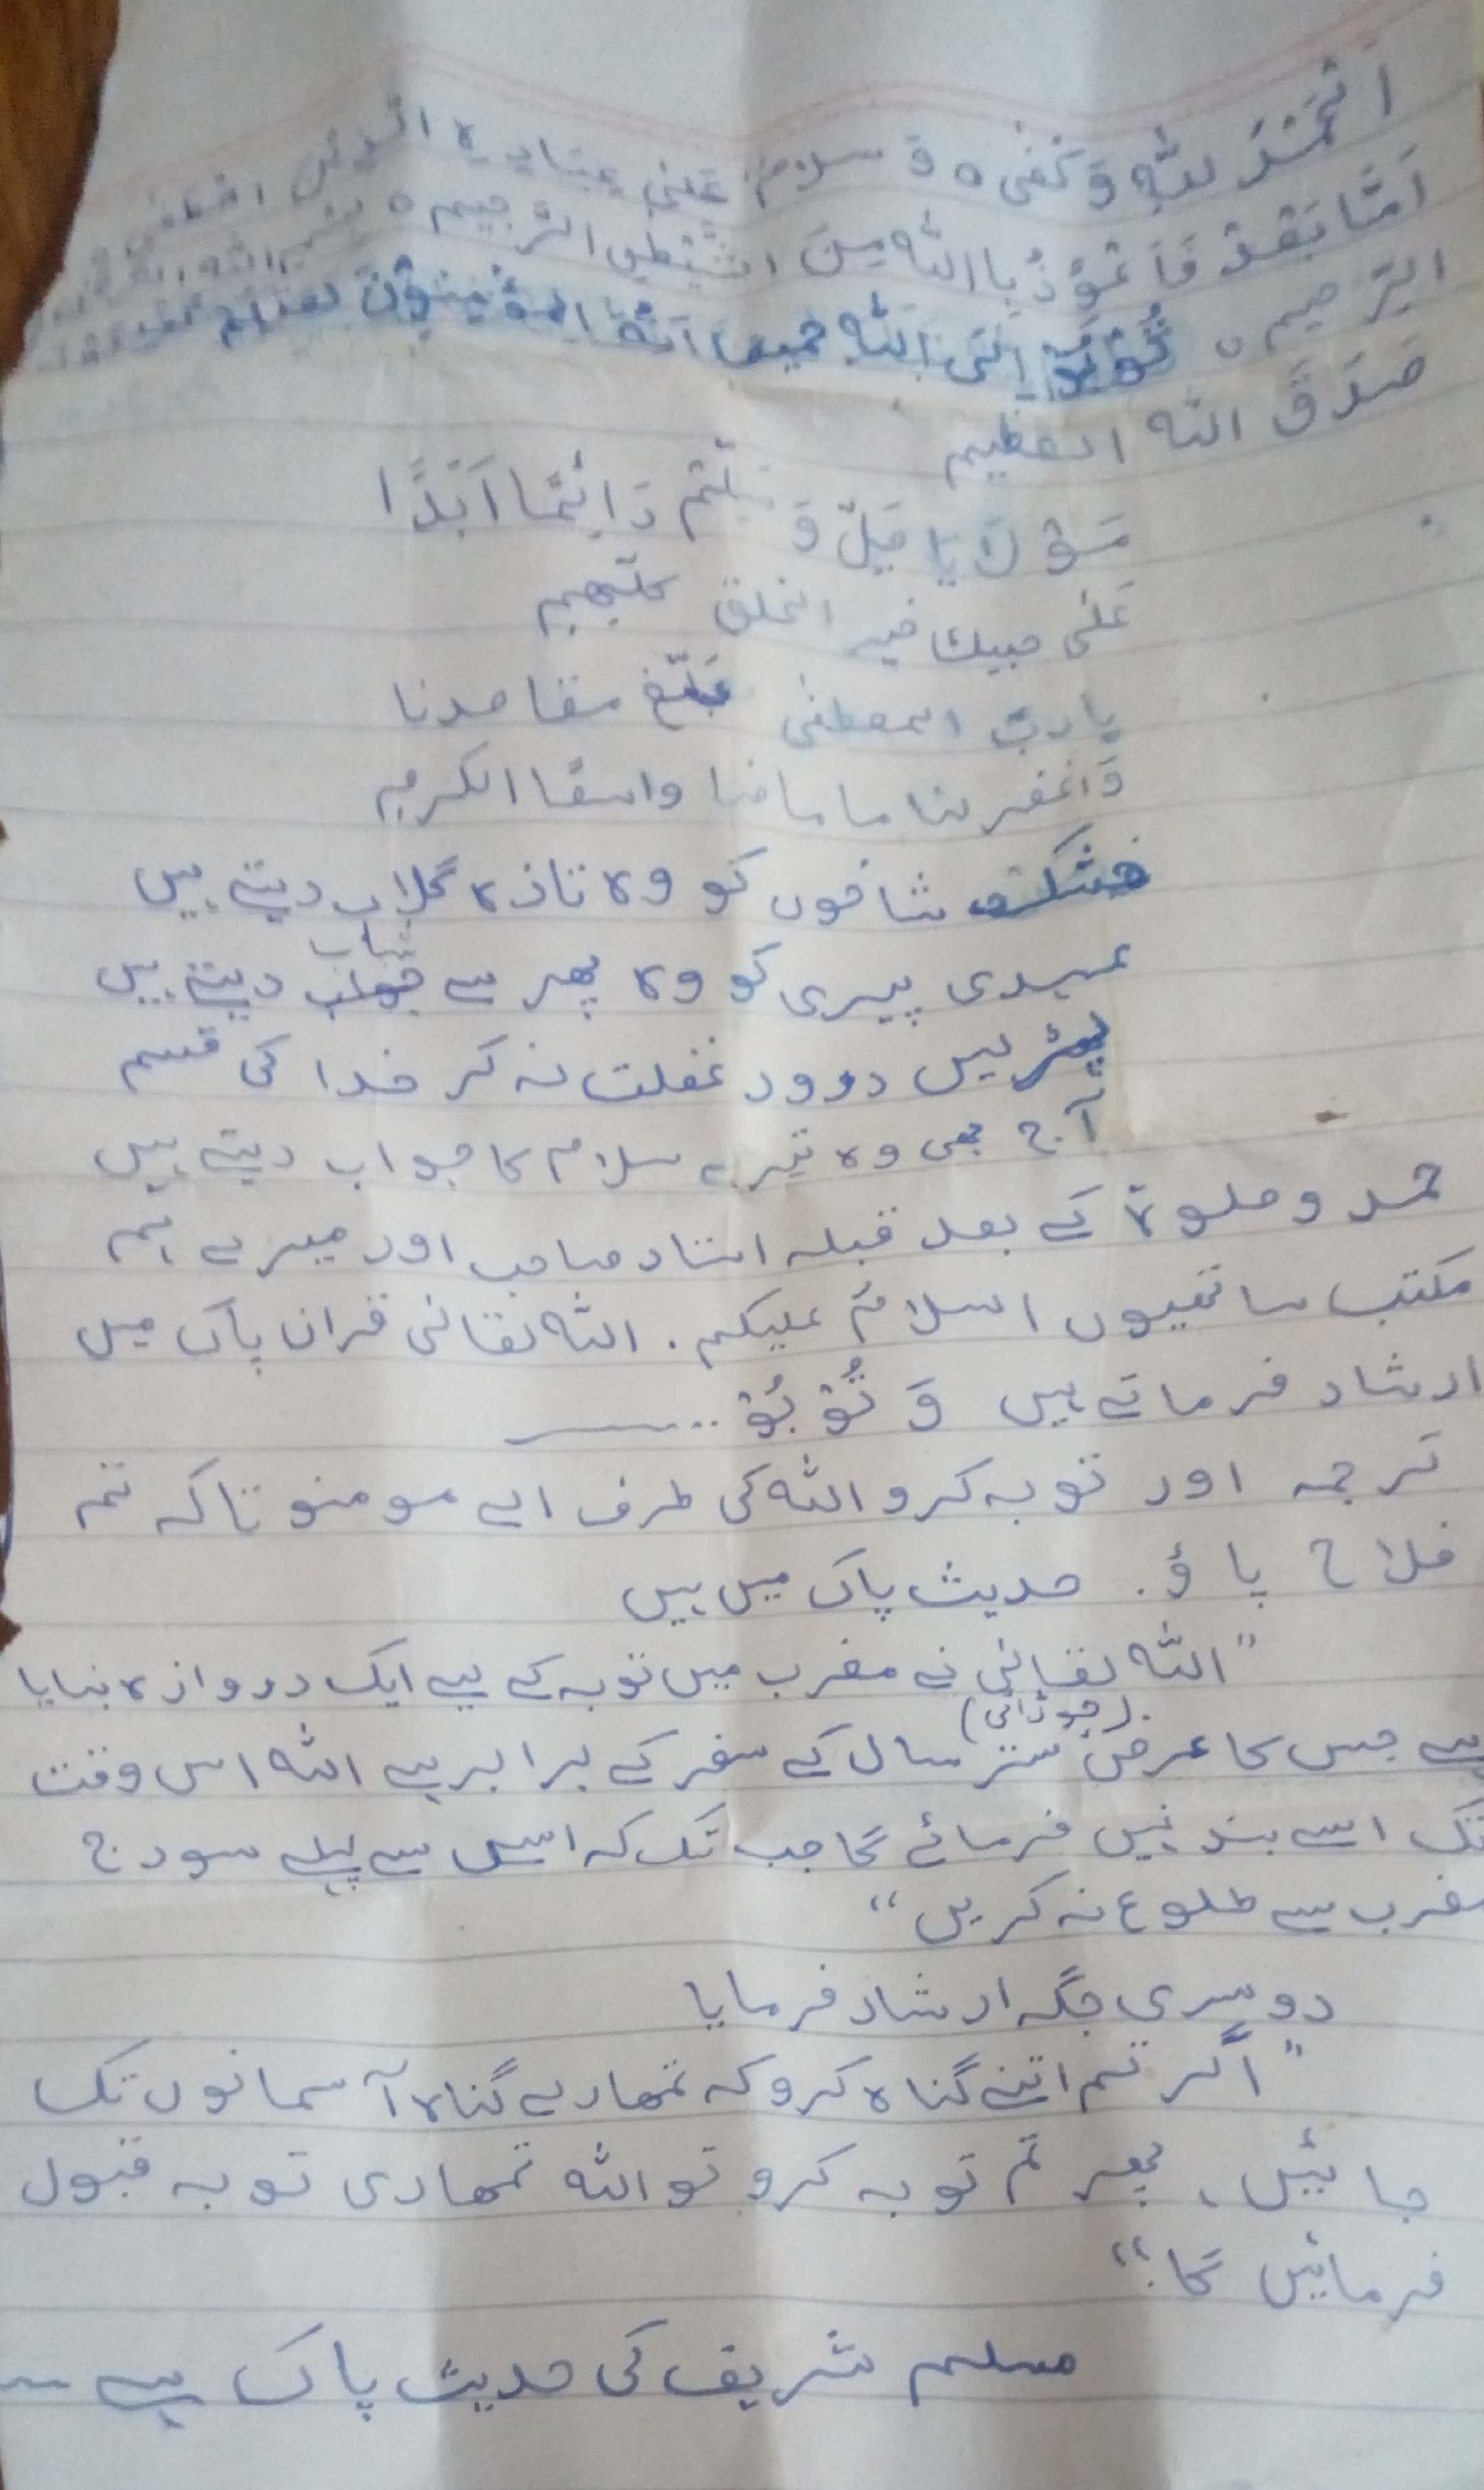 اَلْحَمْدُ لِلّٰهِ وَ کَفٰی ہ وَ سلامٌ عَلٰی عِبَادِہ الذین اصطفی
اَمَّا بَعْدْ فَاَعُوْذُ بِا اللّٰه مِنَ الشَّیْطٰنِ الرَّجِیْم ہ بسم الله الرحمن
الرّحیم ہ تُوْبُوْا اِلَی اللّٰهِ جمیعا اَیُّهَا المؤْمِنُوْنَ لعلکم تفلحون
صَدَقَ الله العظیم
مَوْلَایَا صَلِّ وَ سَلِّمْ دَائِمًا اَبَدًا
عَلٰی حبیبک خیر الخلق کلّھم
یا ربّ المصطفٰی بَلّغ مقاصدنا
وَاغفر لنا ما مضا واسعًا الکرم
خشک شاخوں کو وہ تازہ گلاب دیتے ہیں
عہدی پیری کو وہ پھر سے شباب دیتے ہیں
پڑھنے میں درود غفلت نہ کر خدا کی قسم
آج بھی وہ تیرے سلام کا جواب دیتے ہیں
حمد و صلوٰۃ کے بعد قبلہ استاد صاحب اور میرے ہم
مکتب ساتھیوں اسلامُ علیکم . اللہ تعالٰی قران پاک میں
ارشاد فرماتے ہیں وَ تُوْبُوْ ..ـــــ
ترجمہ اور توبہ کرو اللہ کی طرف اے مومنو تاکہ تم
فلاح پاؤ. حدیث پاک میں ہیں
"اللہ تعالٰی نے مغرب میں توبہ کے لیے ایک دروازہ بنایا
(چوڑائی)
ہے جس کا عرض ستر سال کے سفر کے برابر ہے اللہ اس وقت
تک اسے بند نہیں فرمائے گا جب تک کہ اس سے پہلے سورج
مغرب سے طلوع نہ کریں"
دوسری جگہ ارشاد فرمایا
"اگر تم اتنے گناہ کرو کہ تمھارے گناہ آسمانوں تک
جائیں، پھر تم توبہ کرو تو اللہ تمھاری توبہ قبول
فرمائیں گا."
مسلم شریف کی حدیث پاک ہے ــ